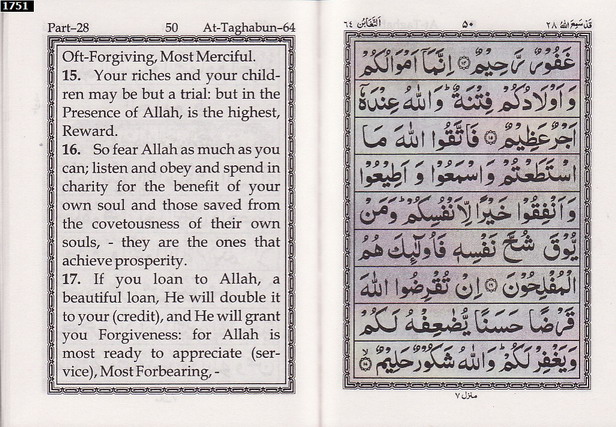 1751
Part–28 50 At-Taghabun–64
Oft-Forgiving, Most Merciful.
15. Your riches and your child-
ren may be but a trial: but in the
Presence of Allah, is the highest,
Reward.
16. So fear Allah as much as you
can; listen and obey and spend in
charity for the benefit of your
own soul and those saved from
the covetousness of their own
souls, - they are the ones that
achieve prosperity.
17. If you loan to Allah, a
beautiful loan, He will double it
to your (credit), and He will grant
you Forgiveness: for Allah is
most ready to appreciate (ser-
vice), Most Forbearing, -
قد سمع الله ٢٨ ٥٠ التغابن ٦٤
غَفُوْرٌ رَّحِيْمٌ ۝١٤ اِنَّمَاۤ اَمْوَالُكُمْ
وَ اَوْلَادُكُمْ فِتْنَةٌ ؕ وَاللّٰهُ عِنْدَهٗۤ
اَجْرٌ عَظِيْمٌ ۝١٥ فَاتَّقُوا اللّٰهَ مَا
اسْتَطَعْتُمْ وَاسْمَعُوْا وَ اَطِيْعُوْا
وَ اَنْفِقُوْا خَيْرًا لِّاَنْفُسِكُمْ ؕ وَمَنْ
يُّوْقَ شُحَّ نَفْسِهٖ فَاُولٰٓئِكَ هُمُ
الْمُفْلِحُوْنَ ۝١٦ اِنْ تُقْرِضُوا اللّٰهَ
قَرْضًا حَسَنًا يُّضٰعِفْهُ لَكُمْ
وَيَغْفِرْ لَكُمْ ؕ وَاللّٰهُ شَكُوْرٌ حَلِيْمٌ ۝١٧
منزل ٧